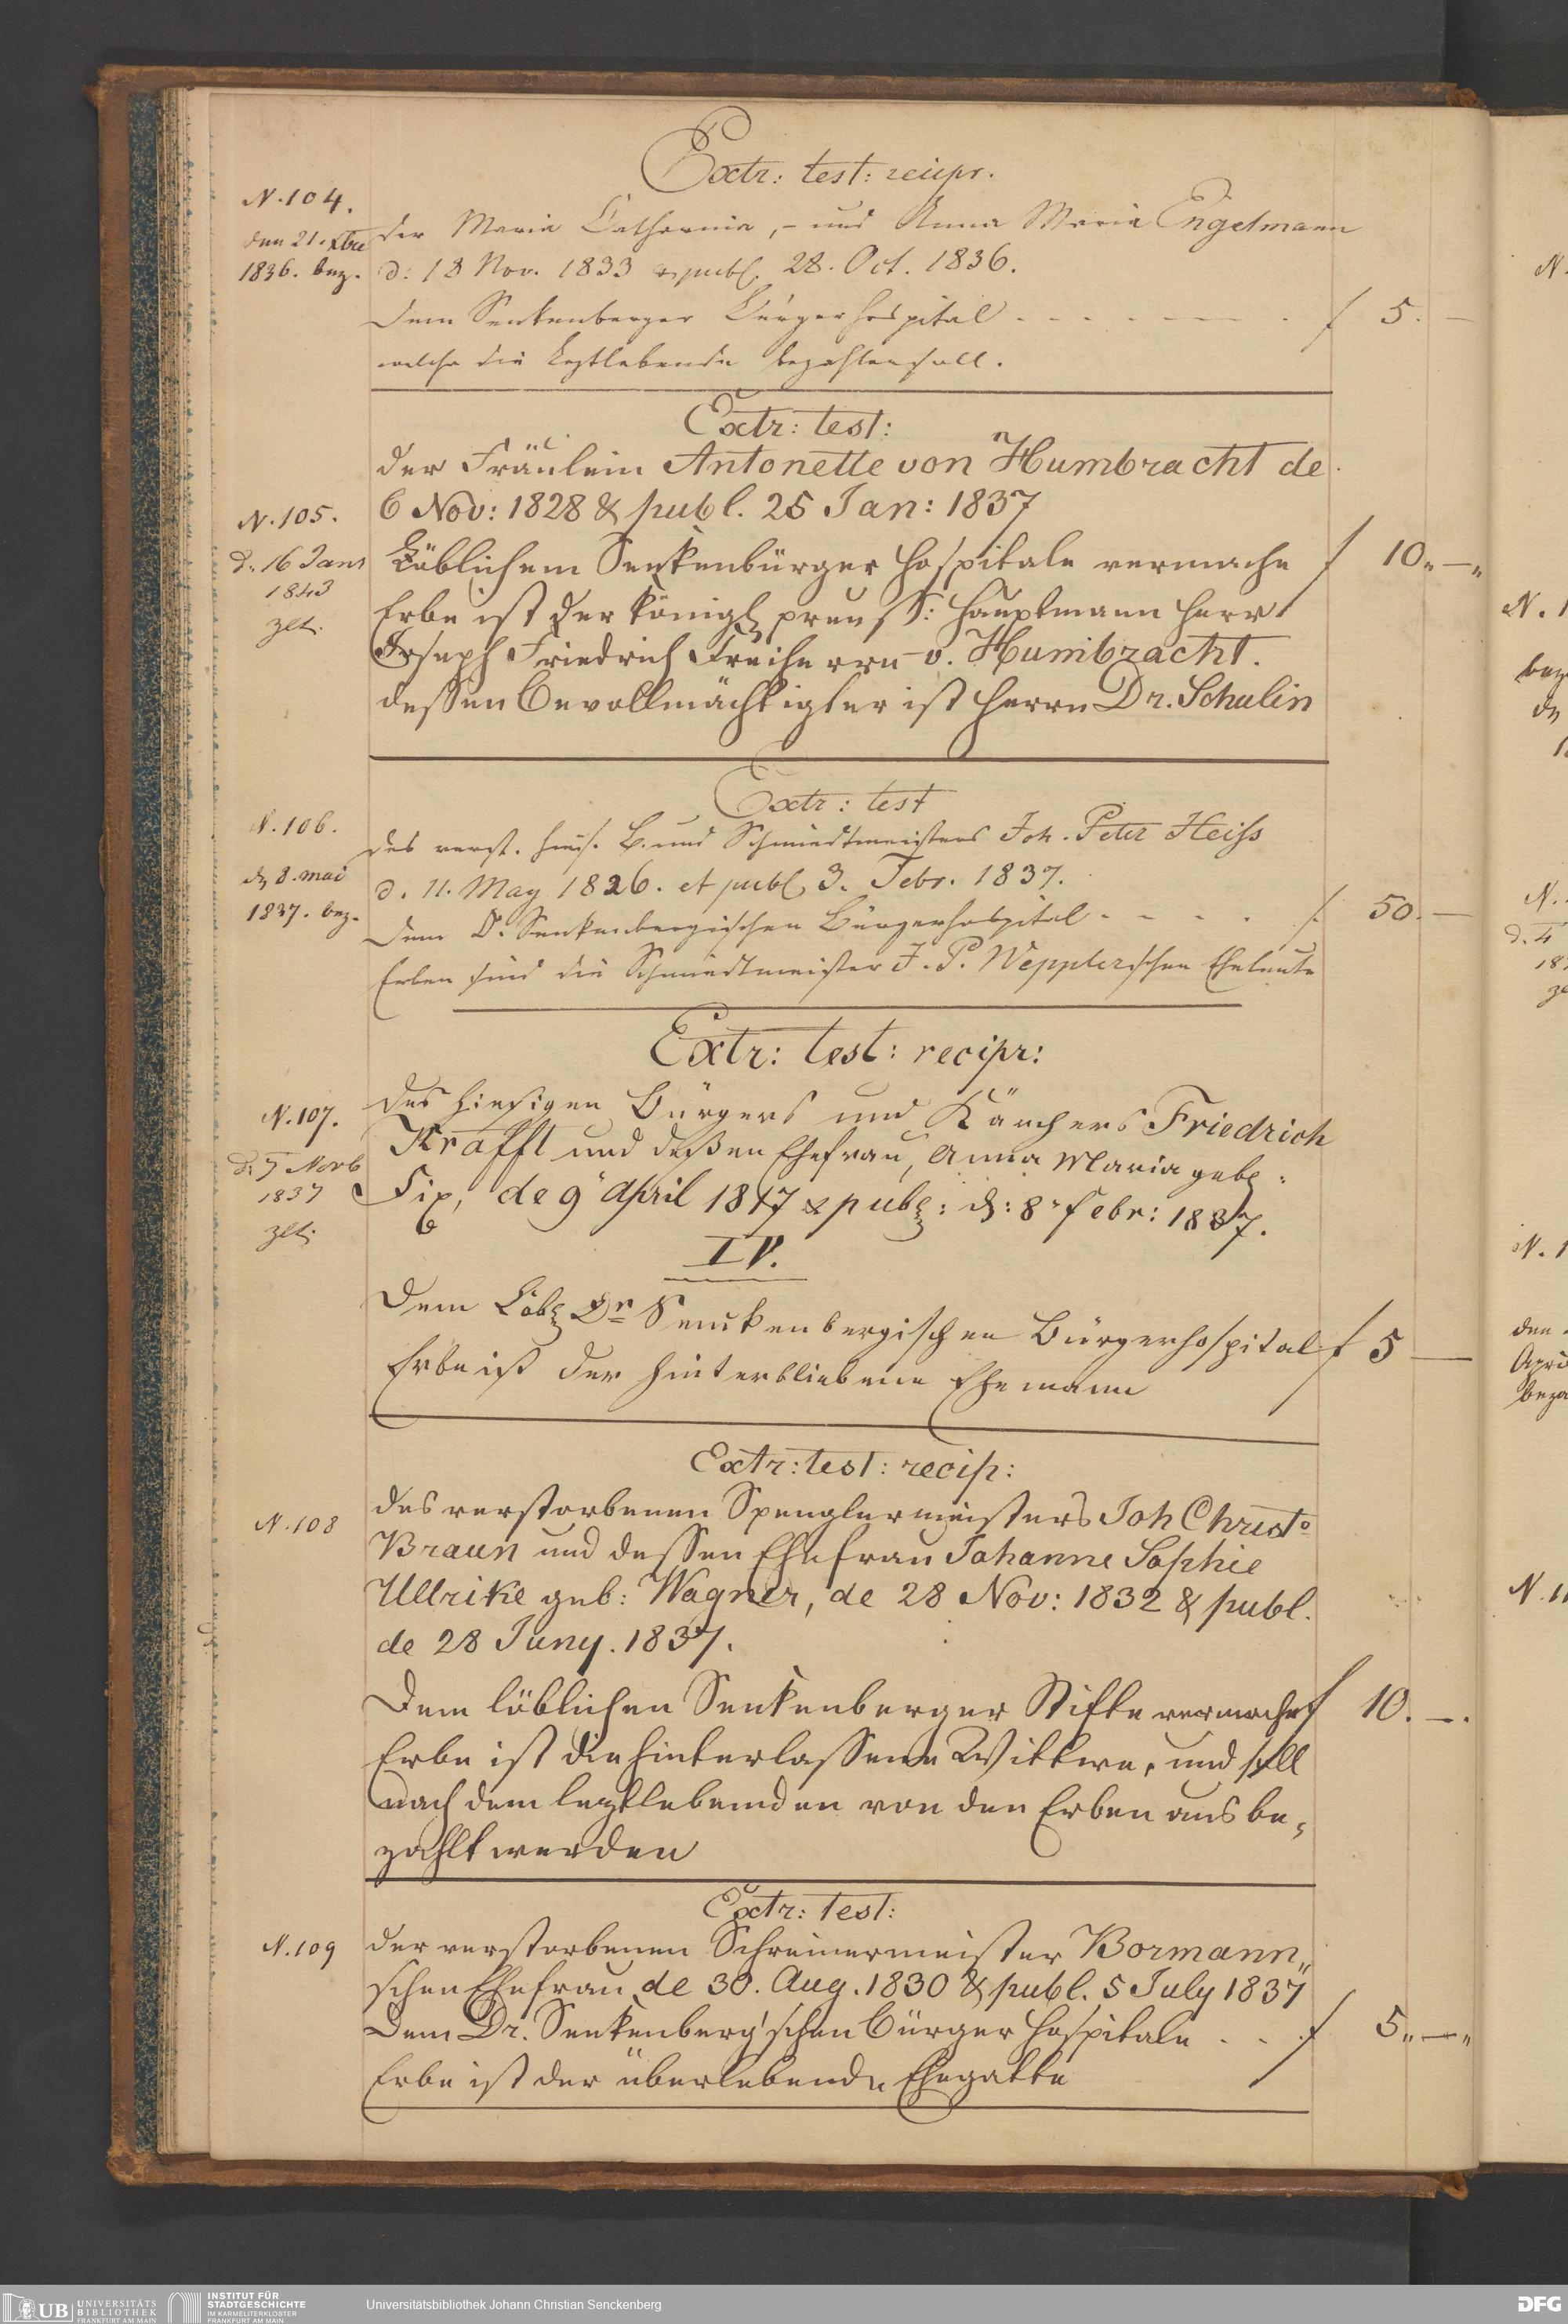 Extr: test: recipr.
N. 104.
der Maria Catharina, - und Anna Maria Engelmann
den 21. Xbre
1836. bez.
d: 18 Nov. 1833 & publ. 28. Oct. 1836.
Dem Senkenberger Bürgerhospital - - - - - - f 5. —
welche die Leztlebende bezahlen soll.
Extr: test:
der Fräulein Antonette von Humbracht de
N. 105.
6 Nov: 1828 & publ. 25 Jan: 1837
d. 16 Janr
1843
zlt.
Löblichem Senkenbürger Hospitale vermache f 10 „ — „
Erbe ist der königl preuss: Hauptmann Herr
Joseph Friedrich Freiherrn v. Humbracht.
dessen Bevollmächtigter ist Herrn Dr. Schulin
Extr: test
N. 106.
des verst. hies. B. und Schmiedtmeisters Joh. Peter Heiss
d. 8. mai
1837. bez.
d. 11. May 1826. et publ. 3. Febr. 1837.
Dem D. Senkenbergischen Bürgerhospital - - - - f. 50. —
Erben sind die Schmiedtmeister J. P. Weppler'schen Eheleute
Extr: test: recipr:
N. 107.
des hiesigen Bürgers und Kärchers Friedrich
Krafft und deßen Ehefrau, Anna Maria gebl:
d. 7 Novb
1837
zlt.
Fix, de 9 April 1817 & publ: d: 8 Febr: 1837.
6
IV.
Dem Löbl Dr Senckenbergischen Bürgerhospital f 5 —
Erbe ist der hinterbliebene Ehemann
Extr: test: recip:
N. 108
des verstorbenen Spenglermeisters Joh Christo
Braun und dessen Ehefrau Johanne Sophie
Ullrike geb: Wagner, de 28 Nov: 1832 & publ.
de 28 Juny. 1837.
Dem löblichen Senkenberger Stifte vermache f 10. —.
Erbe ist die hinterlassene Wittwe, und soll
nach dem leztlebenden von den Erben ausbe,
zahlt werden
Extr: test:
N. 109
der verstorbenen Schreinermeister Bormann„
schen Ehefrau de 30. Aug. 1830 & publ. 5 July 1837
Dem Dr. Senkenberg'schen Bürger Hospitale . . . f 5 „ — „
Erbe ist der überlebende Ehegatte
UB UNIVERSITÄTS
BIBLIOTHEK
FRANKFURT AM MAIN
INSTITUT FÜR
STADTGESCHICHTE
IM KARMELITERKLOSTER
FRANKFURT AM MAIN
Universitätsbibliothek Johann Christian Senckenberg
DFG